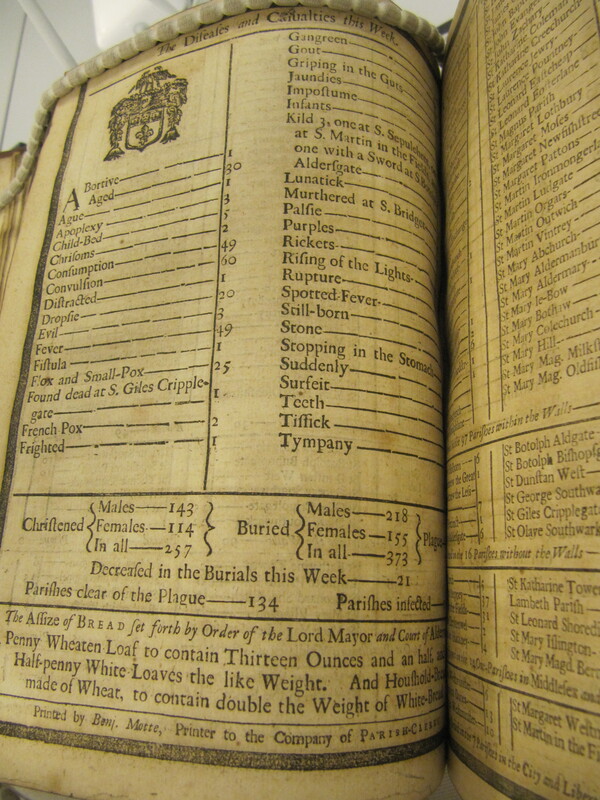 The Diseases and Casualties this Week.
Abortive 1
Aged 30
Ague 1
Apoplexy 3
Child-Bed 5
Chrisoms 2
Consumption 49
Convulsion 60
Distracted 1
Dropsie 20
Evil 3
Fever 49
Fistula 1
Flox and Small-Pox 25
Found dead at S. Giles Cripple-
gate 1
French Pox 2
Frighted 1
Gangreen
Gout
Griping in the Guts
Jaundies
Impostume
Infants
Kild 3, one at S. Sepulchres
at S. Martin in the Fields
one with a Sword at S
Aldersgate
Lunatick
Murthered at S. Bridgets
Palsie
Purples
Rickets
Rising of the Lights
Rupture
Spotted Fever
Still-born
Stone
Stopping in the Stomach
Suddenly
Surfeit
Teeth
Tissick
Tympany
Christened { Males—143 Females—114 In all—257 }
Buried { Males—218 Females—155 In all—373 } Plague
Decreased in the Burials this Week—21
Parishes clear of the Plague—134 Parishes infected
The Assize of BREAD set forth by Order of the Lord Mayor and Court of
Penny Wheaten Loaf to contain Thirteen Ounces and an half, and
Half-penny White Loaves the like Weight. And Houshold-Bread
made of Wheat, to contain double the Weight of White-Bread.
Printed by Benj. Motte, Printer to the Company of PARISH-CLERKS
St Katharine Creechurch
St Margaret Lothbury
St Margaret Moses
St Margaret Newfishstreet
St Margaret Pattons
St Martin Ironmongerlane
St Martin Ludgate
St Martin Orgars
St Martin Outwich
St Martin Vintrey
St Mary Abchurch
St Mary Aldermanbury
St Mary Aldermary
St Mary le-Bow
St Mary Bothaw
St Mary Colechurch
St Mary Hill
St Mary Mag. Milkst
St Mary Mag. Oldfish
97 Parishes within the Walls
St Botolph Aldgate
St Botolph Bishopsg
St Dunstan West
St George Southwa
St Giles Cripplegat
St Olave Southwark
in the 16 Parishes without the Walls
St Katharine Tower
Lambeth Parish
St Leonard Shoredi
St Mary Islington
St Mary Magd. Ber
Parishes in Middlesex and
St Margaret Westm
St Martin in the Fi
in the City and Liber